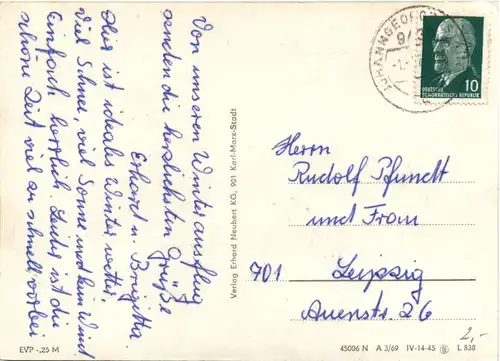 Von unseren Winterausflug
senden die herzlichsten Grüße
Erhard u. Brigitta.
Hier ist ideales Winterwetter,
viel Schnee, viel Sonne und kein Wind.
Einfach herrlich. Leider ist die
schöne Zeit viel zu schnell vorbei
EVP -,25 M
Verlag Erhard Neubert KG, 901 Karl-Marx-Stadt
JOHANNGEORG
10
DEUTSCHE
DEMOKRATISCHE REPUBLIK
Herrn
Rudolf Pfundt
und Frau
701 Leipzig
Auenstr. 26
2,-
45006 N A 3/69 IV-14-45 L 838